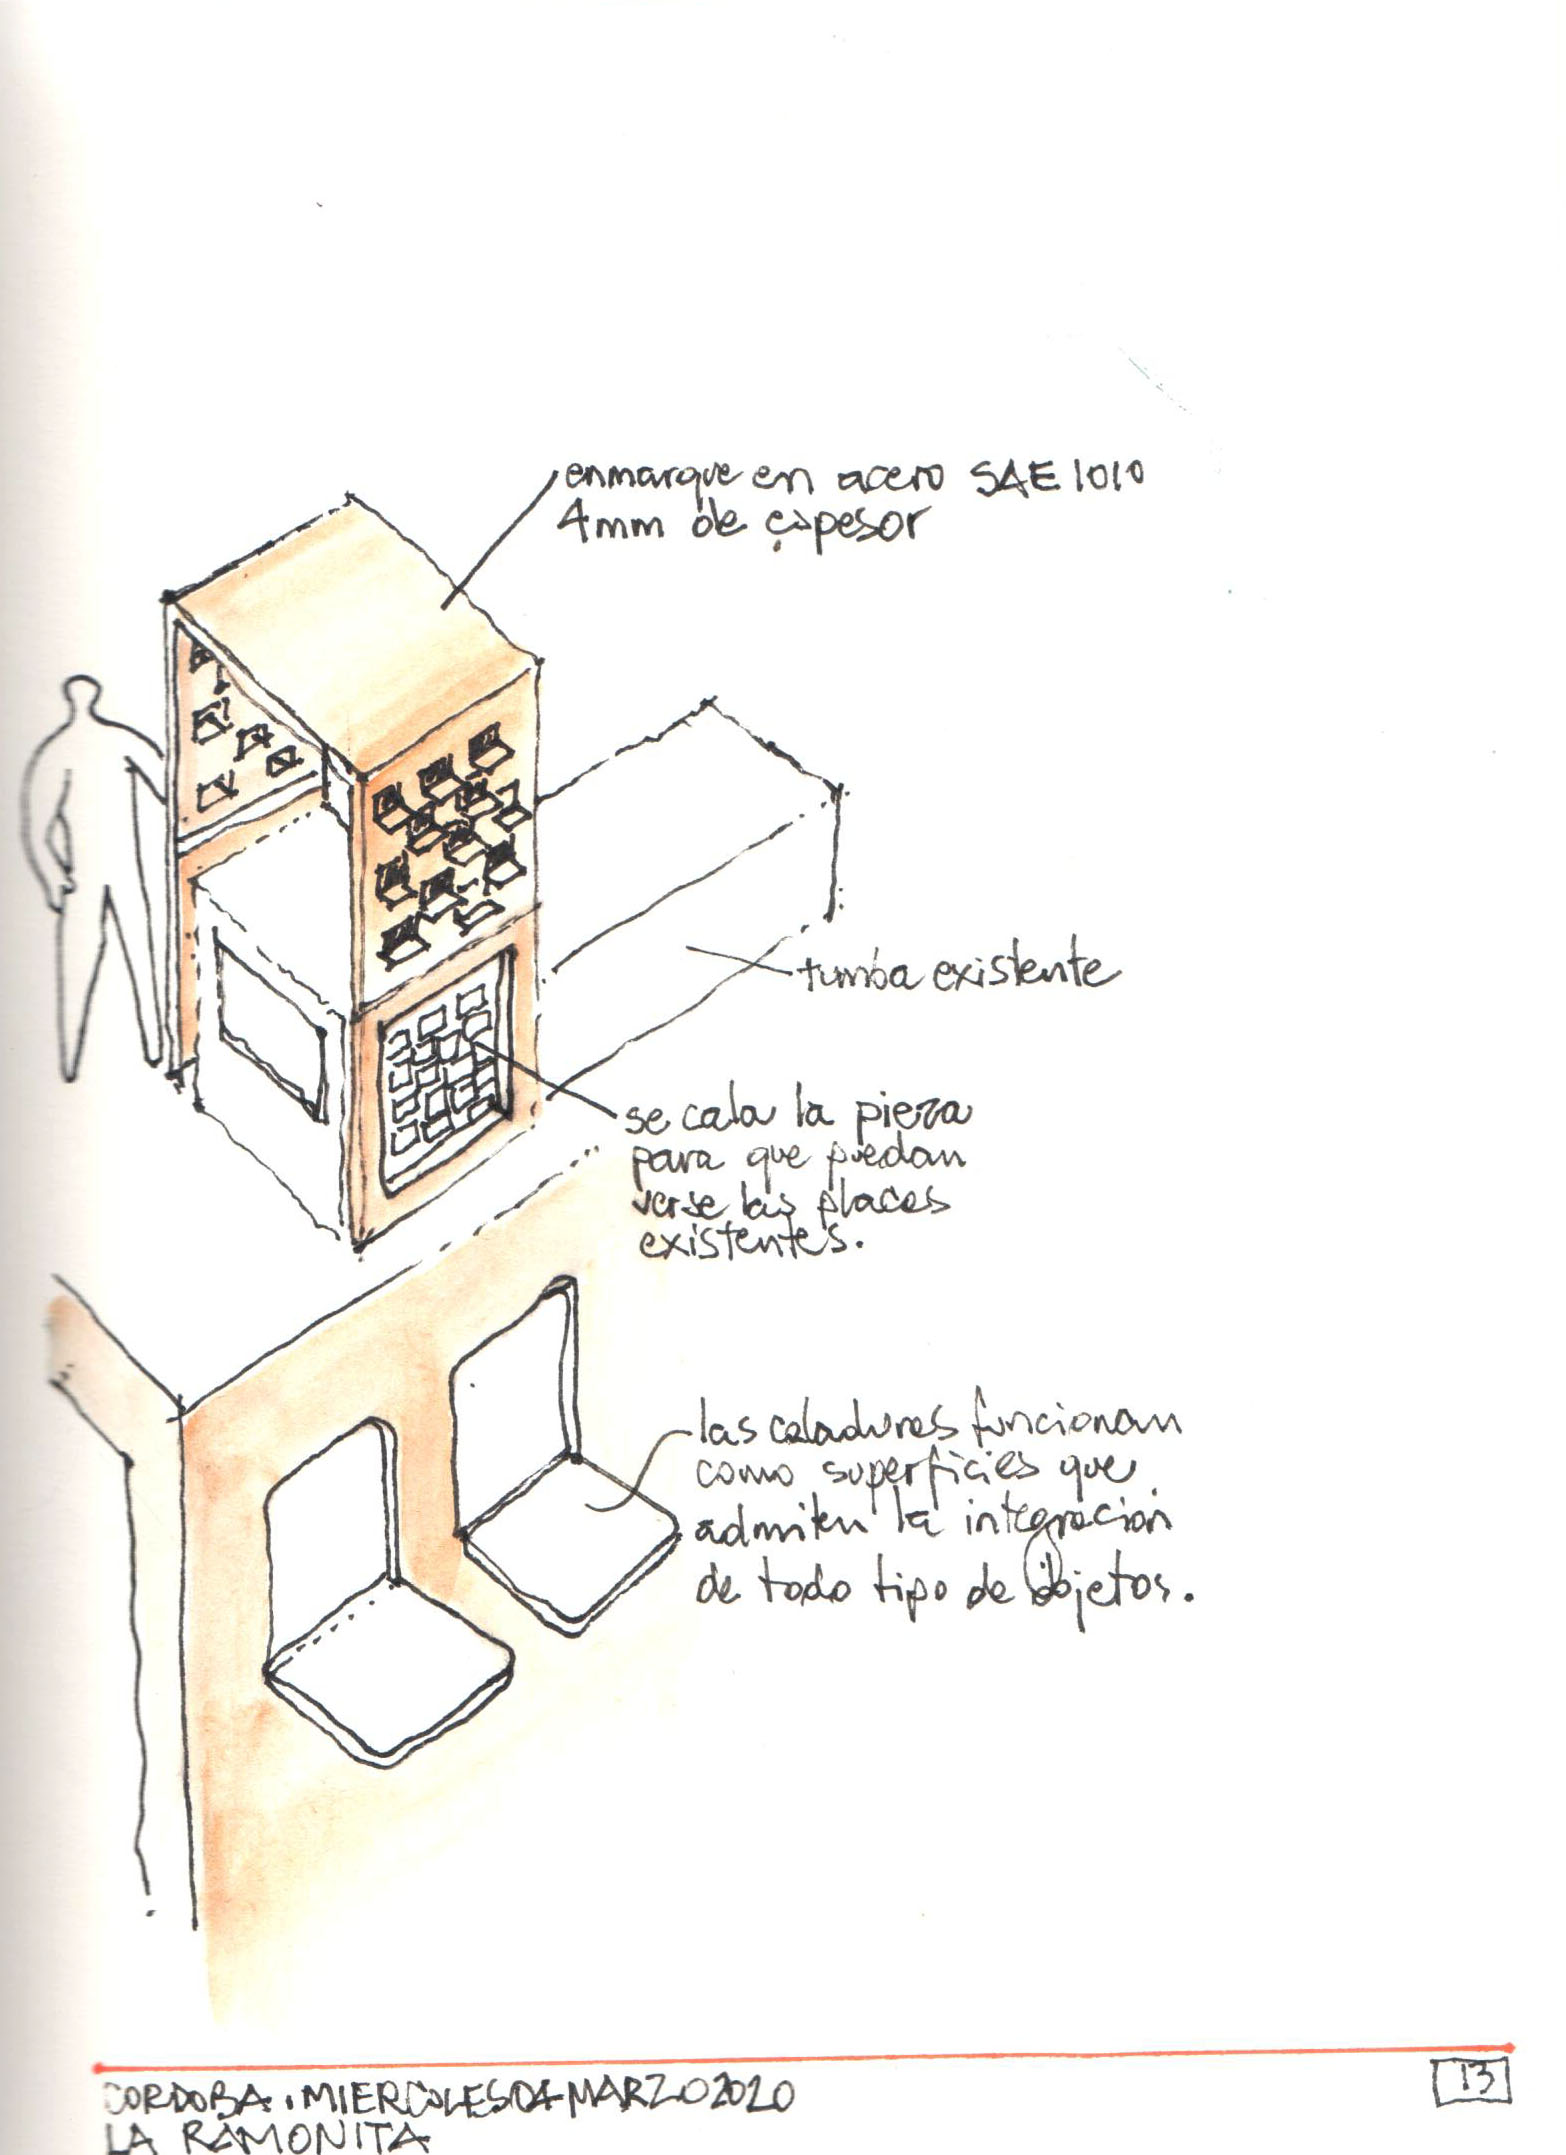 enmarque en acero SAE 1010
4mm de espesor
tumba existente
se cala la pieza
para que puedan
verse las placas
existentes.
las caladuras funcionan
como superficies que
admiten la integración
de todo tipo de objetos.
CORDOBA. MIERCOLES 04 MARZO 2020
LA RAMONITA
13